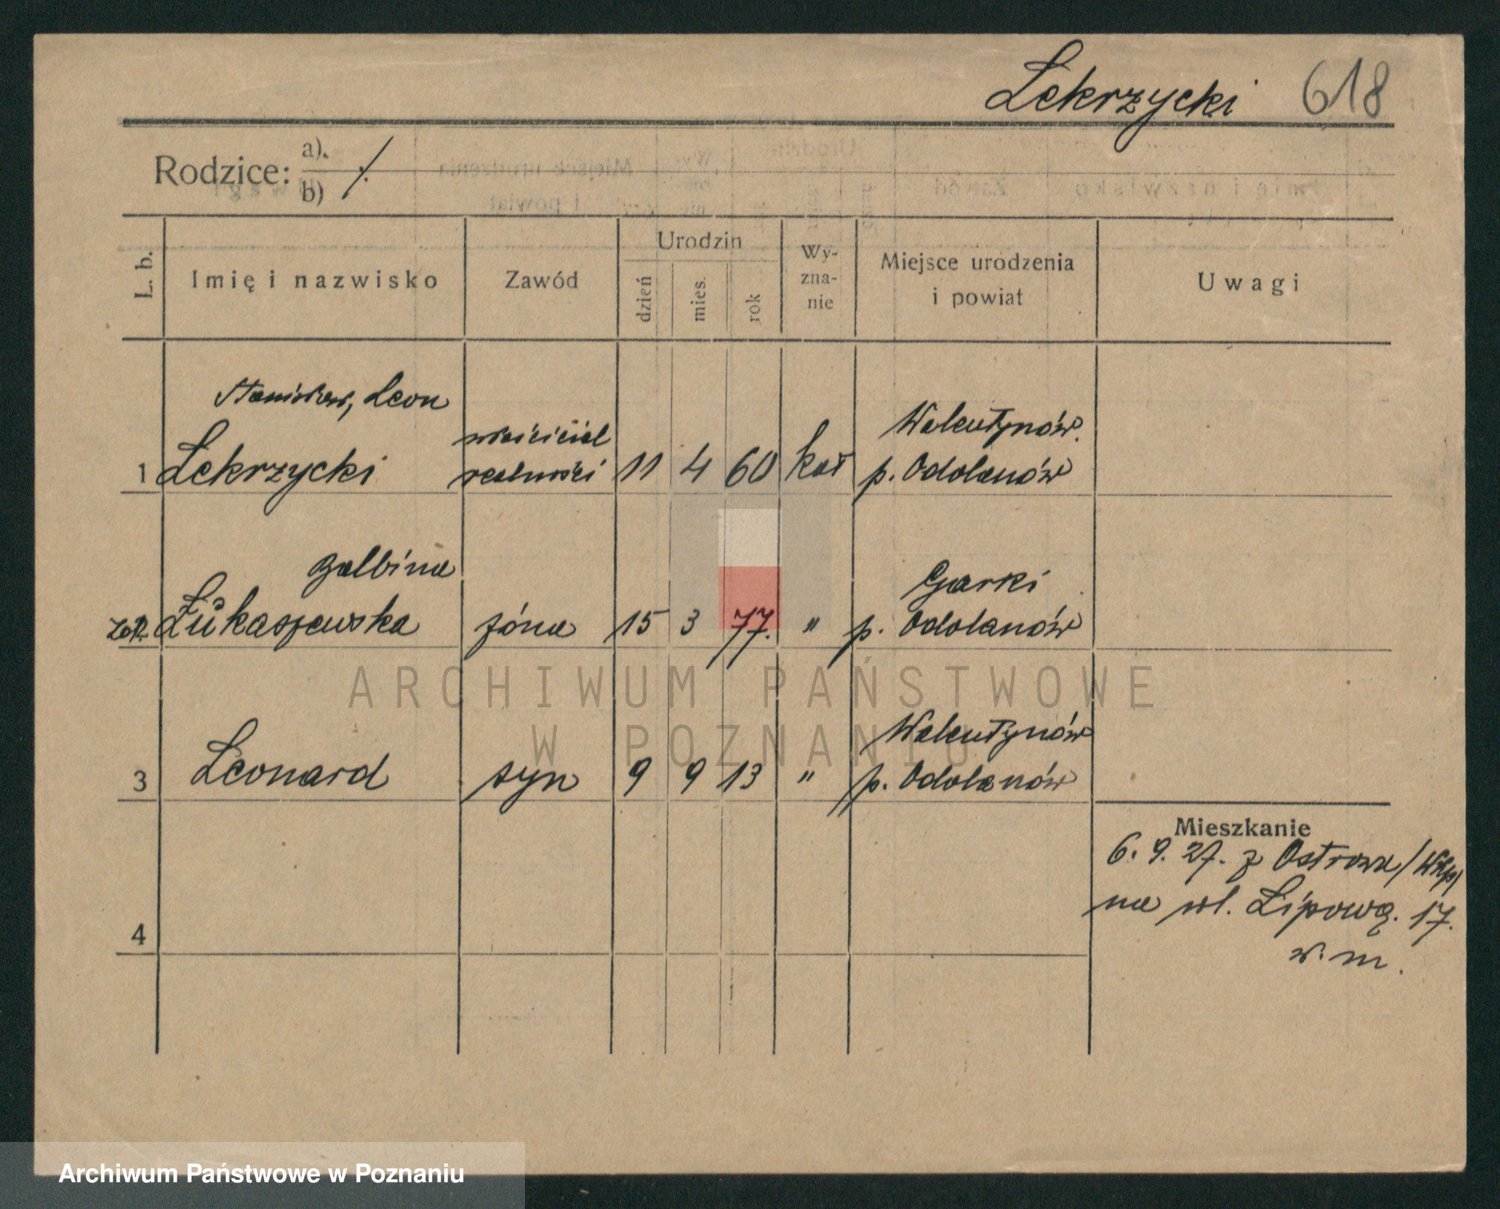 Lekrzycki 618
Rodzice: a). b) ./.
L. b.
Imię i nazwisko
Zawód
Urodzin
dzień
mies.
rok
Wy-
zna-
nie
Miejsce urodzenia
i powiat
Uwagi
Stanisław, Leon
1 Lekrzycki
właściciel
realności
11 4 60 kat
Walentynów
p. Odolanów
Balbina
Łukaszewska
żóna
15 3 77. "
Garki
p. Odolanów
3 Leonard
syn
9 9 13 "
Walentynów
p. Odolanów
4
Mieszkanie
6. 9. 27. z Ostrowa /Wlkp/
na ul. Lipową. 17.
w. m.
ARCHIWUM PAŃSTWOWE
W POZNANIU
Archiwum Państwowe w Poznaniu